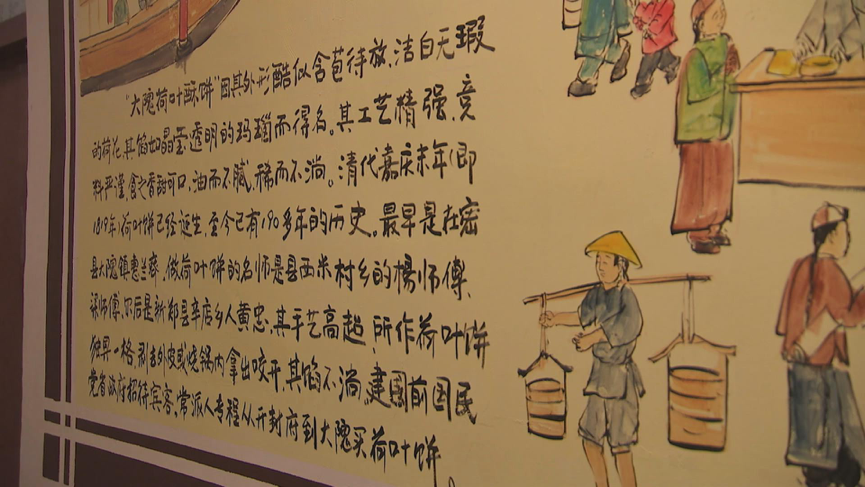 "大隗荷叶酥饼"因其外形酷似含苞待放、洁白无瑕
的荷花,其馅如晶莹透明的玛瑙而得名。其工艺精强,竞
料严谨,食之香甜可口,油而不腻,稀而不淌。清代嘉庆末年(即
1819年)荷叶饼已经诞生,至今已有190多年的历史。最早是在密
县大隗镇惠兰斋,做荷叶饼的名师是县西米村乡的楊师傅、
梁师傅,尔后是新郑县辛店乡人黄忠,其手艺高超,所作荷叶饼
独具一格,剥去外皮或烧锅内拿出咬开,其馅不淌,建國前因民
党省政府招待宾客,常派人专程从开封府到大隗买荷叶饼。